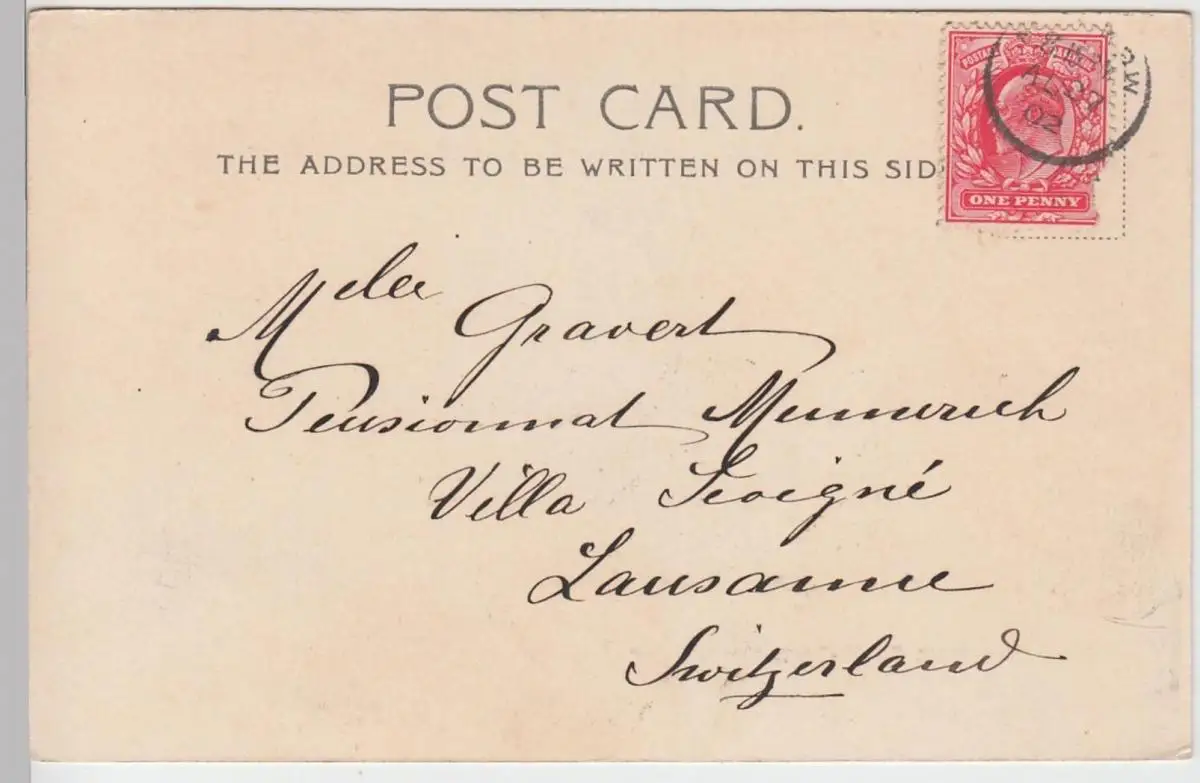 POST CARD.
THE ADDRESS TO BE WRITTEN ON THIS SID
POSTAGE
ONE PENNY
02
Mdlle Gravert
Pensionnat Mummerich
Villa Sevigné
Lausanne
Switzerland